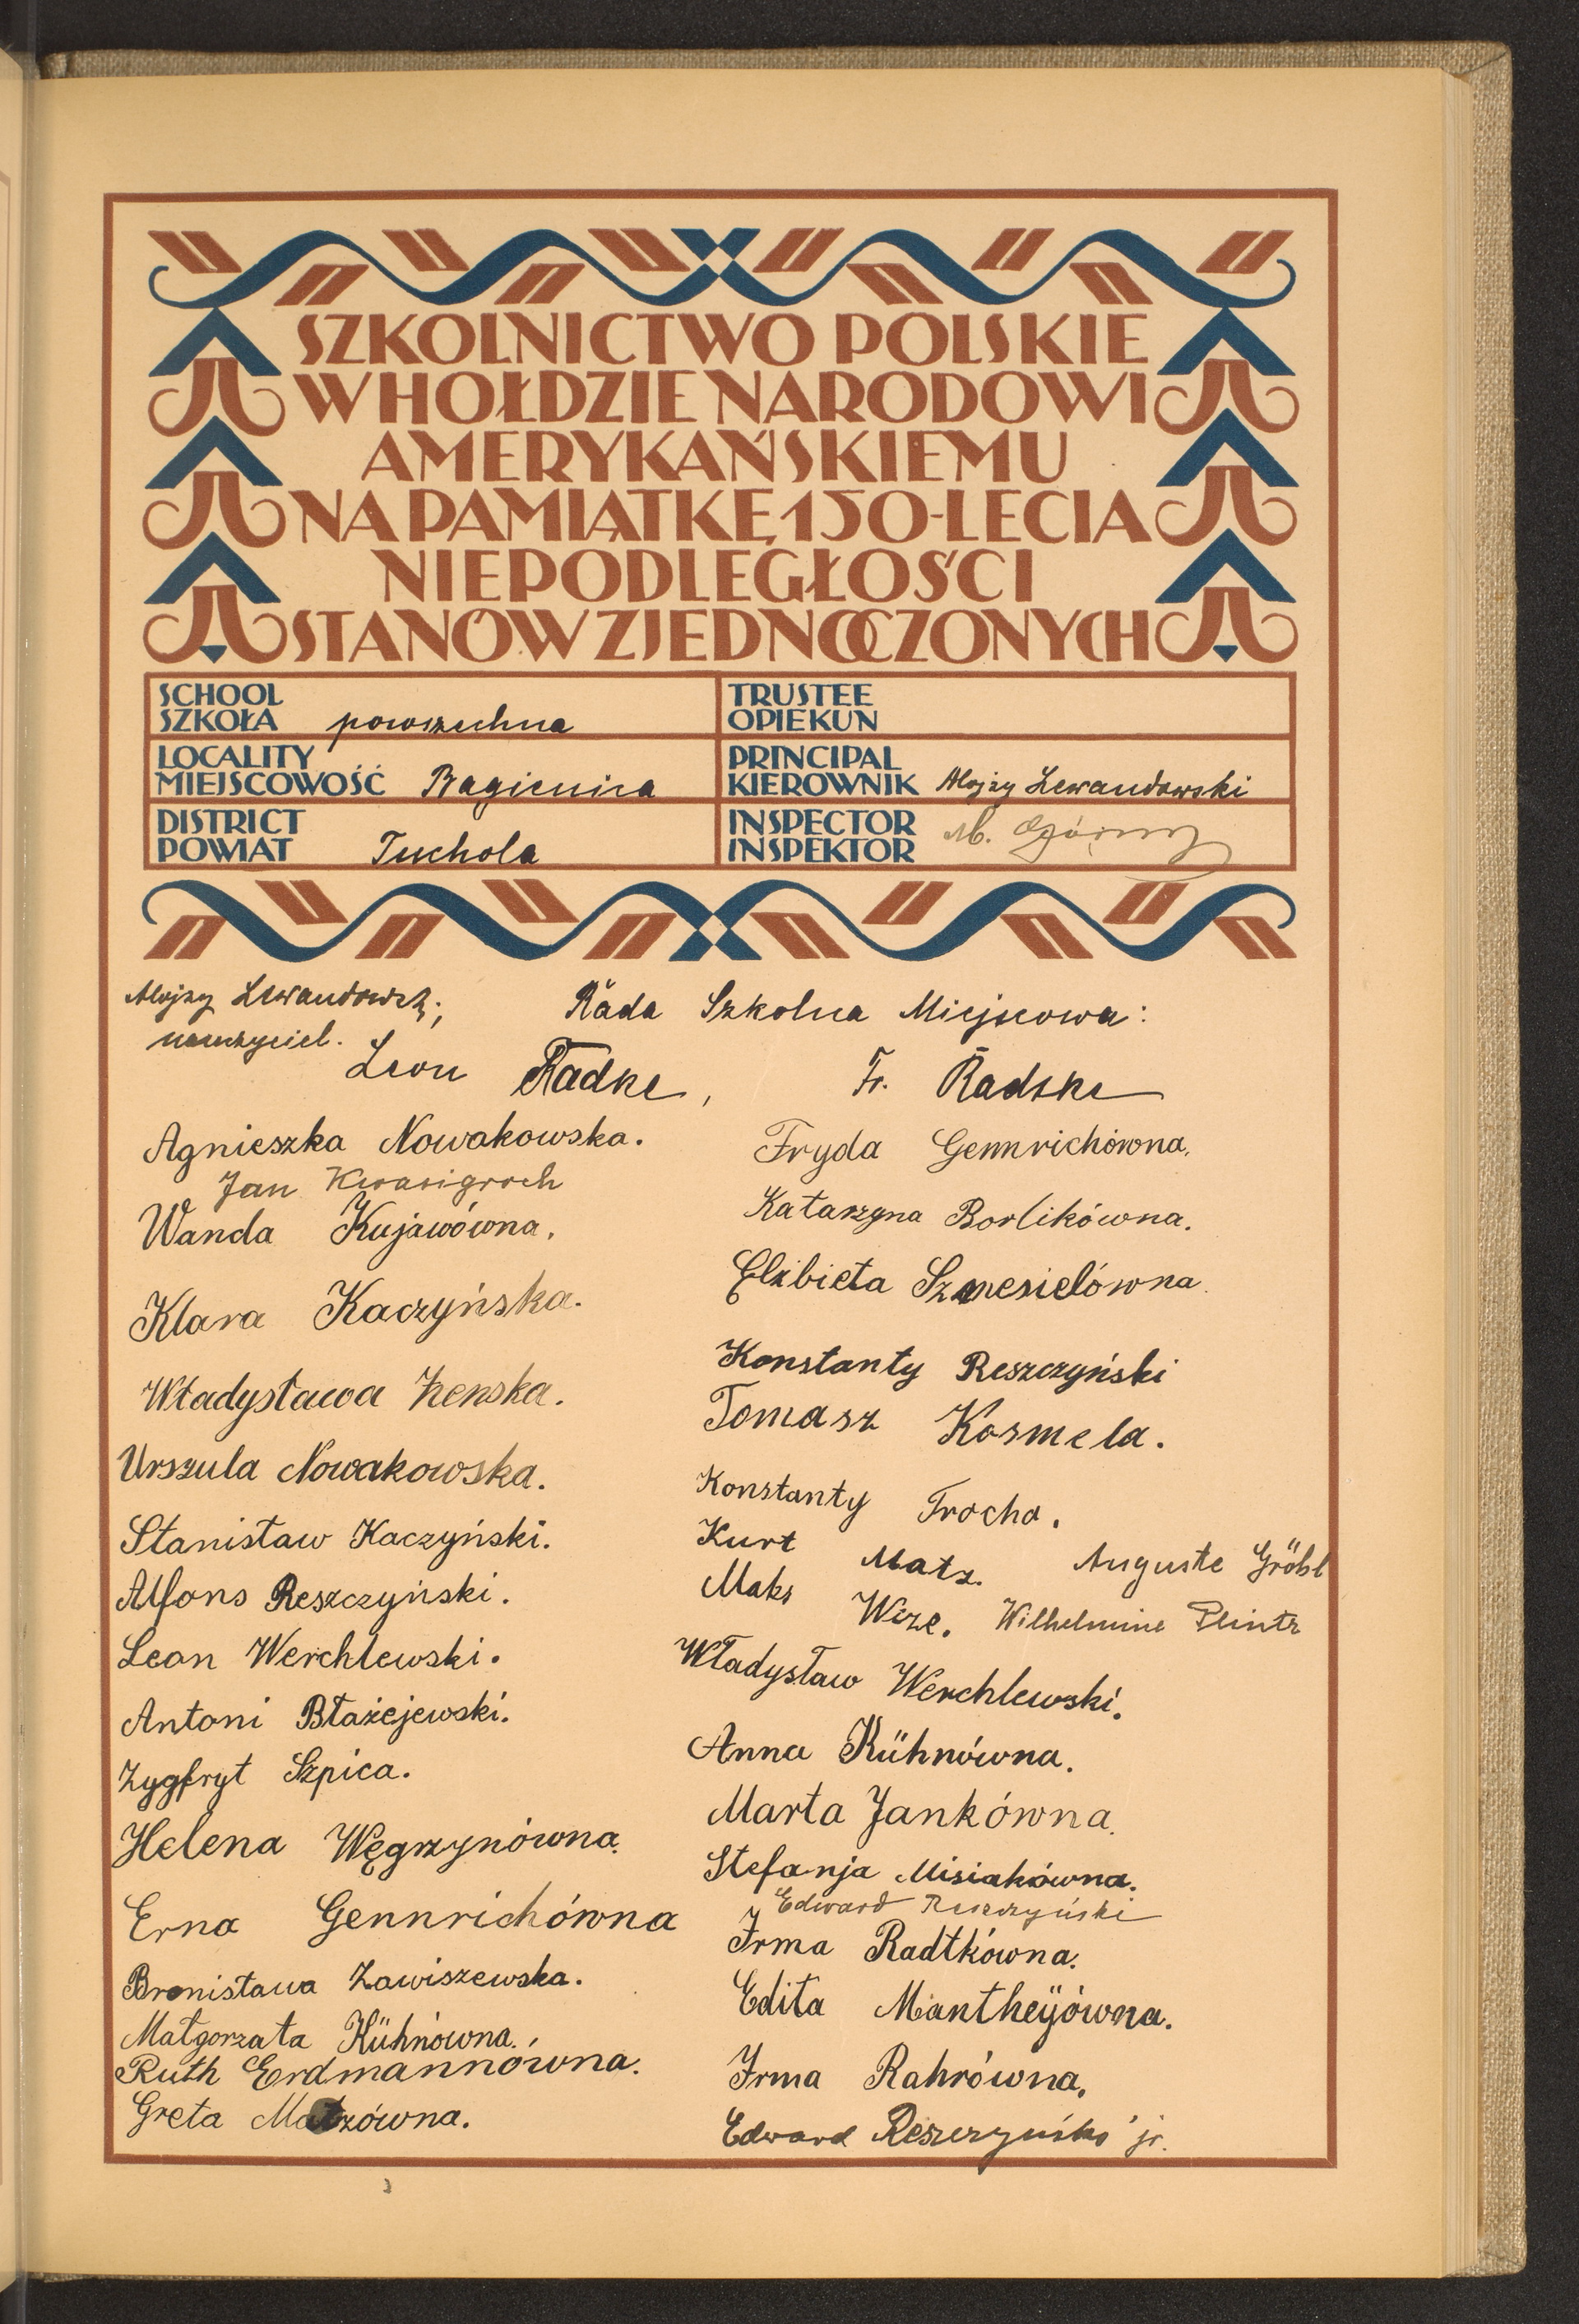 SZKOLNICTWO POLSKIE
W HOŁDZIE NARODOWI
AMERYKAŃSKIEMU
NA PAMIĄTKĘ 150-LECIA
NIEPODLEGŁOŚCI
STANÓW ZJEDNOCZONYCH
SCHOOL
SZKOŁA powszechna
TRUSTEE
OPIEKUN
LOCALITY
MIEJSCOWOŚĆ Bagienica
PRINCIPAL
KIEROWNIK Alojzy Lewandowski
DISTRICT
POWIAT Tuchola
INSPECTOR
INSPEKTOR M. Górny
Alojzy Lewandowski,
nauczyciel.
Rada Szkolna Miejscowa:
Leon Radke, Fr. Radske
Agnieszka Nowakowska.
Jan Kwasigroch
Wanda Kujawówna.
Klara Kaczyńska.
Władysława Żenska.
Urszula Nowakowska.
Stanisław Kaczyński.
Alfons Reszczyński.
Leon Werchlewski.
Antoni Błażejewski.
Zygfryt Szpica.
Helena Węgrzynówna.
Erna Gennrichówna
Bronisława Zawiszewska.
Małgorzata Kühnówna.
Ruth Erdmannówna.
Greta Matzówna.
Fryda Gennrichówna.
Katarzyna Borlikówna.
Elżbieta Szmesielówna.
Konstanty Reszczyński
Tomasz Kosmela.
Konstanty Trocha.
Kurt Matz. Auguste Gröhl
Maks Weze. Wilhelmine
Władysław Werchlewski.
Anna Kühnówna.
Marta Jankówna.
Stefanja Misiakówna.
Edward Reszczyński
Irma Radtkówna.
Edita Mantheyówna.
Irma Rahrówna.
Edward Reszczyński jr.